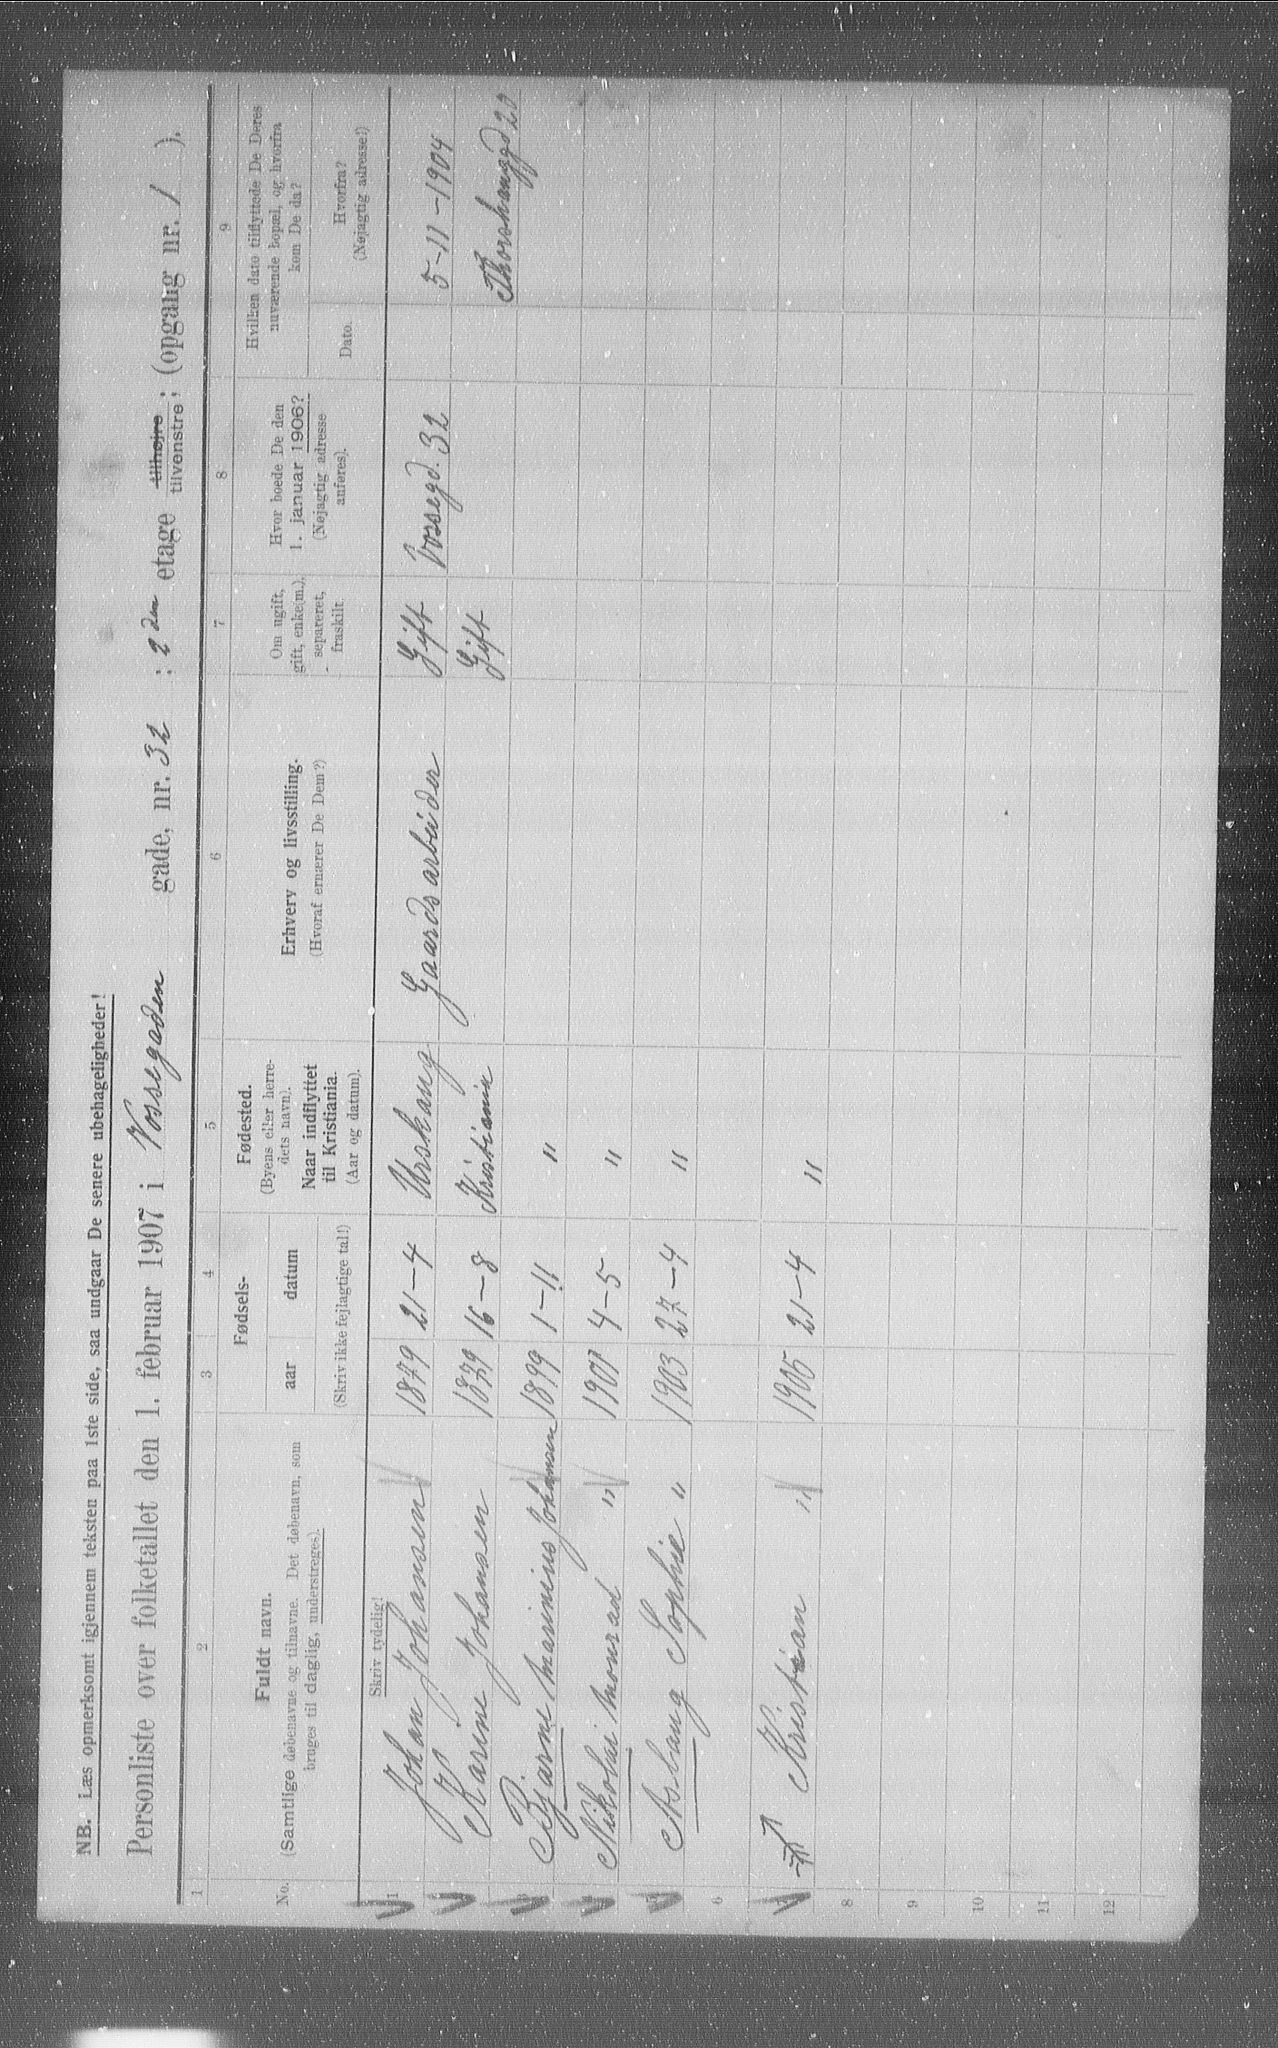 NB. Læs opmerksomt igjennem teksten paa 1ste side, saa undgaar De senere ubehageligheder!
Personliste over folketallet den 1. februar 1907 i Vossegaden gade, nr. 32 : 2den etage tilhøjre tilvenstre ; (opgang nr. 1 ).
1 2 3 4 5 6 7 8 9
No. Fuldt navn. (Samtlige døbenavne og tilnavne. Det døbenavn, som bruges til daglig, understreges). Skriv tydelig!
Fødsels- aar datum (Skriv ikke fejlagtige tal!)
Fødested. (Byens eller herredets navn). Naar indflyttet til Kristiania. (Aar og datum).
Erhverv og livsstilling. (Hvoraf ernærer De Dem?)
Om ugift, gift, enke(m.), separeret, fraskilt.
Hvor boede De den 1. januar 1906? (Nøjagtig adresse anføres).
Hvilken dato tilflyttede De Deres nuværende bopæl, og hvorfra kom De da? Dato. Hvorfra? (Nøjagtig adresse!)
1 Johan Johansen 1879 21-4 Urskaug Gaardsarbeider Gift Vossegd. 32 5-11-1904
2 Karine Johansen 1879 16-8 Kristiania Gift Thorshauggd 20
3 Bjarne Marinius Johansen 1899 1-11 "
4 Nikolai Monrad " 1901 4-5 "
5 Aslaug Sophie " 1903 27-4 "
6
7 Kristian " 1905 21-4 "
8
9
10
11
12